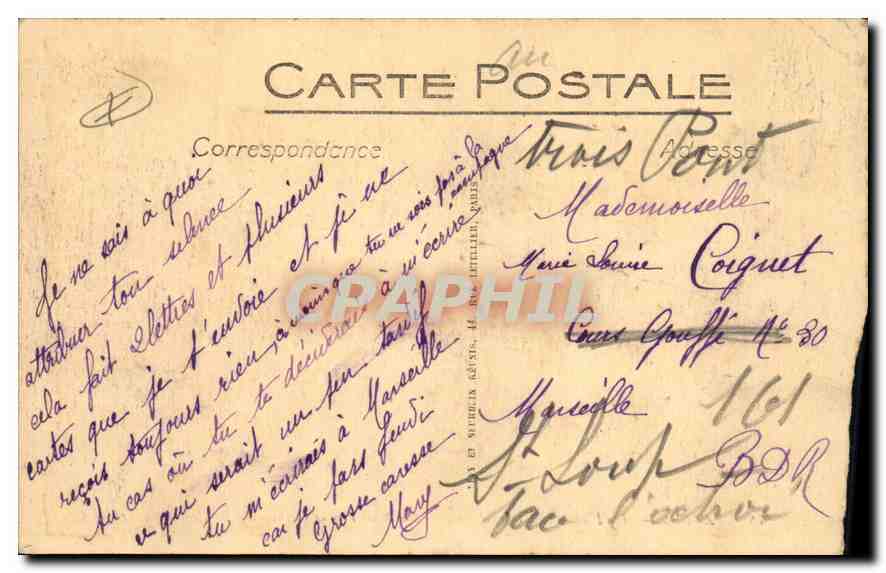 CARTE POSTALE
Correspondance
Adresse
Je ne sais à quoi
attribuer ton silence
cela fait 2 lettres et plusieurs
cartes que je t'envoie et je ne
reçois toujours rien, à moins que tu ne sois pas à la campagne
Au cas où tu te déciderais à m'écrire
ce qui serait un peu tardif
tu m'écrirais à Marseille
car je pars Jeudi
Grosse caresse
Mary
au
trois Pont
Mademoiselle
Marie Louise Coignet
Cours Gouffé No 30
Marseille
161
St-Loup
BDR
face l'octroi
ET NEURDEIN RÉUNIS, 44, RUE LETELLIER, PARIS
CPAPHIL